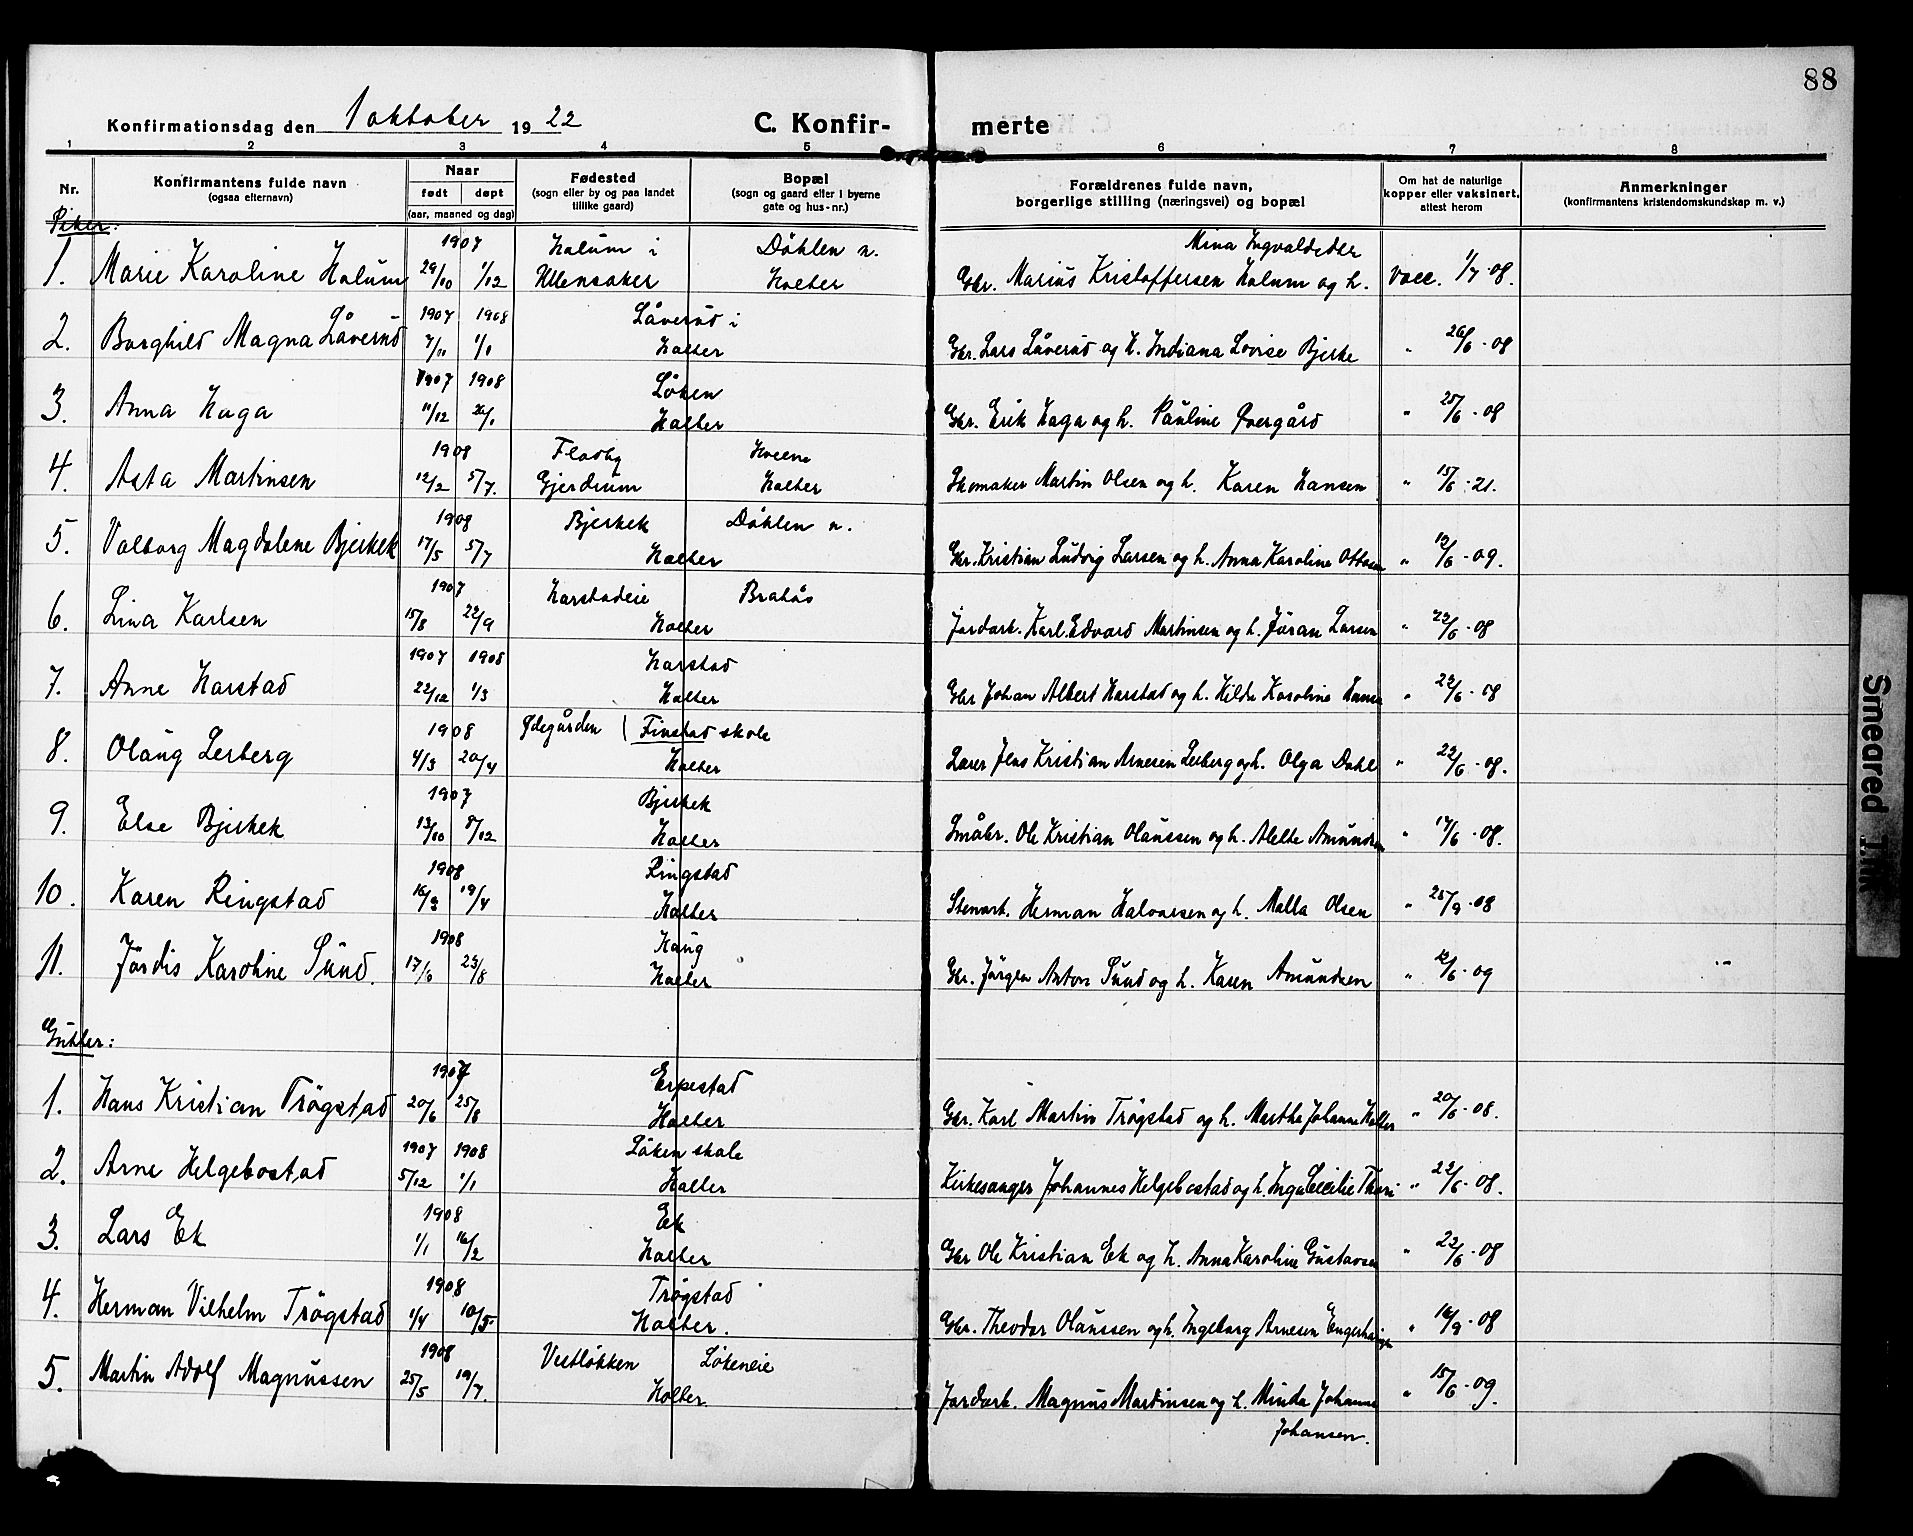 88
Konfirmationsdag den 1 oktober 1922 C. Konfir- merte
1 2 3 4 5 6 7 8
Nr. Konfirmantens fulde navn (ogsaa efternavn) Naar født døpt (aar, maaned og dag) Fødested (sogn eller by og paa landet tillike gaard) Bopæl (sogn og gaard eller i byerne gate og hus-nr.) Forældrenes fulde navn, borgerlige stilling (næringsvei) og bopæl Om hat de naturlige kopper eller vaksinert, attest herom Anmerkninger (konfirmantens kristendomskundskap m. v.)
Piker:
1907 Holum i Døhlen n. Mina Ingvaldsdtr
1. Marie Karoline Holum 29/10 1/12 Ullensaker Holter Gbr. Marius Kristoffersen Holum og h. vacc. 1/7 08.
1907 1908 Låverud i
2. Borghild Magna Låverud 7/11 1/1 Holter Gbr. Lars Låverud og h. Indiana Lovise Bjerke " 26/6 - 08
1907 1908 Løken
3. Anna Haga 11/12 26/1 Holter Gbr. Erik Haga og h. Pauline Overgård " 25/6 - 08
1908 Fladby Hveem
4. Asta Martinsen 12/2 5/7. Gjerdrum Holter Skomaker Martin Olsen og h. Karen Hansen " 15/6 - 21.
1908 Bjerkek Døhlen n.
5. Valborg Magdalene Bjerkek 17/5 5/7 Holter Gbr. Kristian Ludvig Larsen og h. Anna Karoline Ottosen " 12/6 - 09.
1907 Harstadeie Bratås
6. Lina Karlsen 15/8 22/9 Holter Jordarb. Karl Edvard Martinsen og h. Jøran Larsen " 22/6 - 08
1907 1908 Harstad
7. Anne Harstad 22/12 1/3 Holter Gbr Johan Albert Harstad og h. Hilda Karoline " 22/6 - 08
1908 Ødegården ( Finstad skole
8. Olaug Lerberg 4/3 20/4 Holter Lærer Jens Kristian Arnesen Lerberg og h. Olga Dahl " 22/6 - 08.
1907 Bjerkek
9. Else Bjerkek 13/10 8/12 Holter Småbr. Ole Kristian Olaussen og h. Alette Amundsen " 17/6 - 08.
1908 Ringstad
10. Karen Ringstad 16/3 19/4 Holter Stenarb. Herman Halvorsen og h. Malla Olsen " 25/9 - 08
1908 Haug
11. Jørdis Karoline Sund. 17/6 23/8 Holter Gbr. Jørgen Anton Sund og h. Karen Amundsen " 12/6 - 09
Gutter:
1907 Erpestad
1. Hans Kristian Trøgstad 20/6 25/8 Holter Gbr. Karl Martin Trøgstad og h. Marthe Johanne Holter " 20/6 - 08.
1907 1908 Løken skole
2. Arne Helgebostad 5/12 1/1 Holter Kirkesanger Johannes Helgebostad og h. Inga Cecilie " 22/6 - 08.
1908 Ek
3. Lars Ek 1/1 16/2 Holter Gbr Ole Kristian Ek og h. Anna Karoline Gustavsen " 22/6 - 08
1908 Trøgstad
4. Herman Vilhelm Trøgstad 1/4 10/5 Holter. Gbr. Theodor Olaussen og h. Ingeborg Arnesen " 16/9 - 08
1908 Vestløkken Løkeneie
5. Martin Adolf Magnussen 25/5 19/7. Holter Jordarb. Magnus Martinsen og h. Minda Johanne " 15/6 - 09.
Johansen.
Smeared Ink